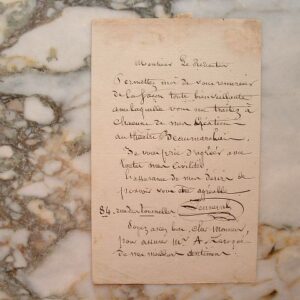 Monsieur Le Directeur
Permettez moi de vous remercier
de la façon toute bienveillante
avec laquelle vous me traitez à
chacune de mes
au théâtre Beaumarchais.
Je vous prie d'agréer avec
toutes mes civilités
l'assurance de mon désir de
pouvoir vous être agréable
84, rue des Tournelles
Soyez assez bon, Cher Monsieur,
pour assurer Mr A.
de mes meilleurs sentiments.